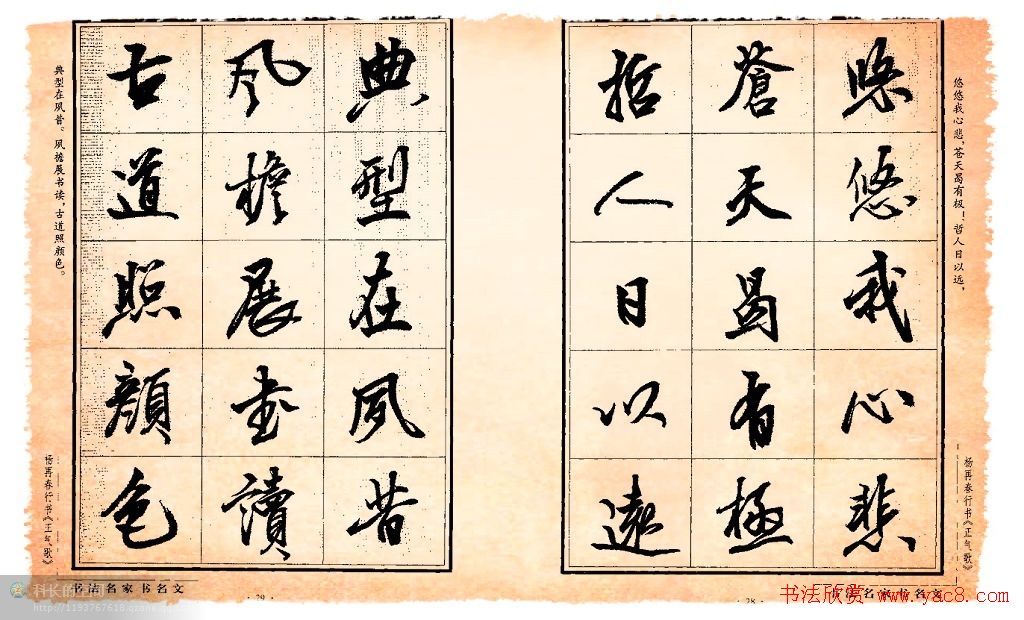 悠悠我心悲,苍天曷有极!哲人日以远,
杨再春行书《正气歌》
悠悠我心悲
蒼天曷有極
哲人日以遠
· 28 ·
书法名家书名文
典風古
型檐道
在展照
夙書顏
昔讀色
典型在夙昔。风檐展书读,古道照颜色。
杨再春行书《正气歌》
书法名家书名文
· 29 ·
科长的空间
http://1193767618.qzone.qq.com
书法欣赏 www.yac8.com